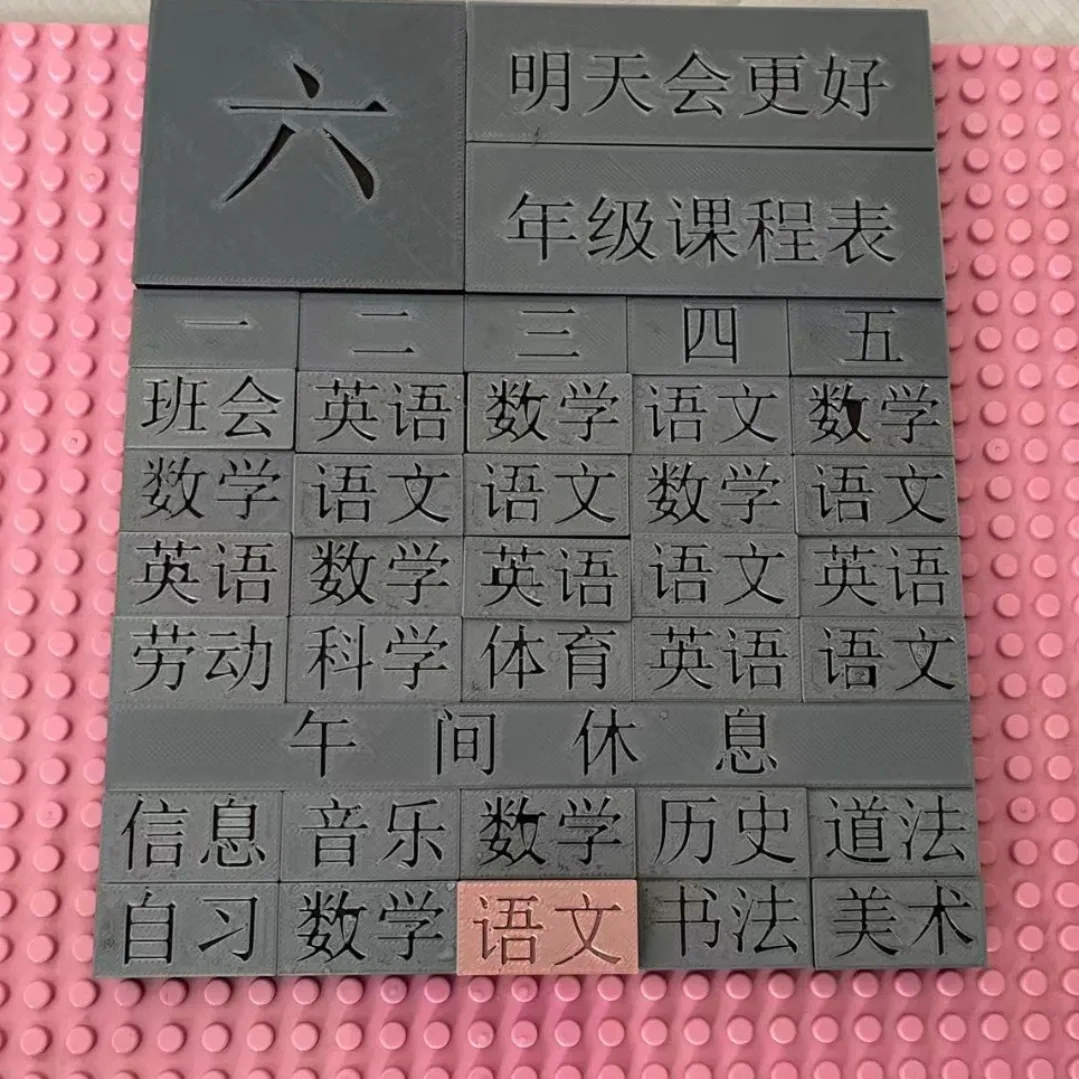 六
明天会更好
年级课程表
一 二 三 四 五
班会 英语 数学 语文 数学
数学 语文 语文 数学 语文
英语 数学 英语 语文 英语
劳动 科学 体育 英语 语文
午间休息
信息 音乐 数学 历史 道法
自习 数学 语文 书法 美术